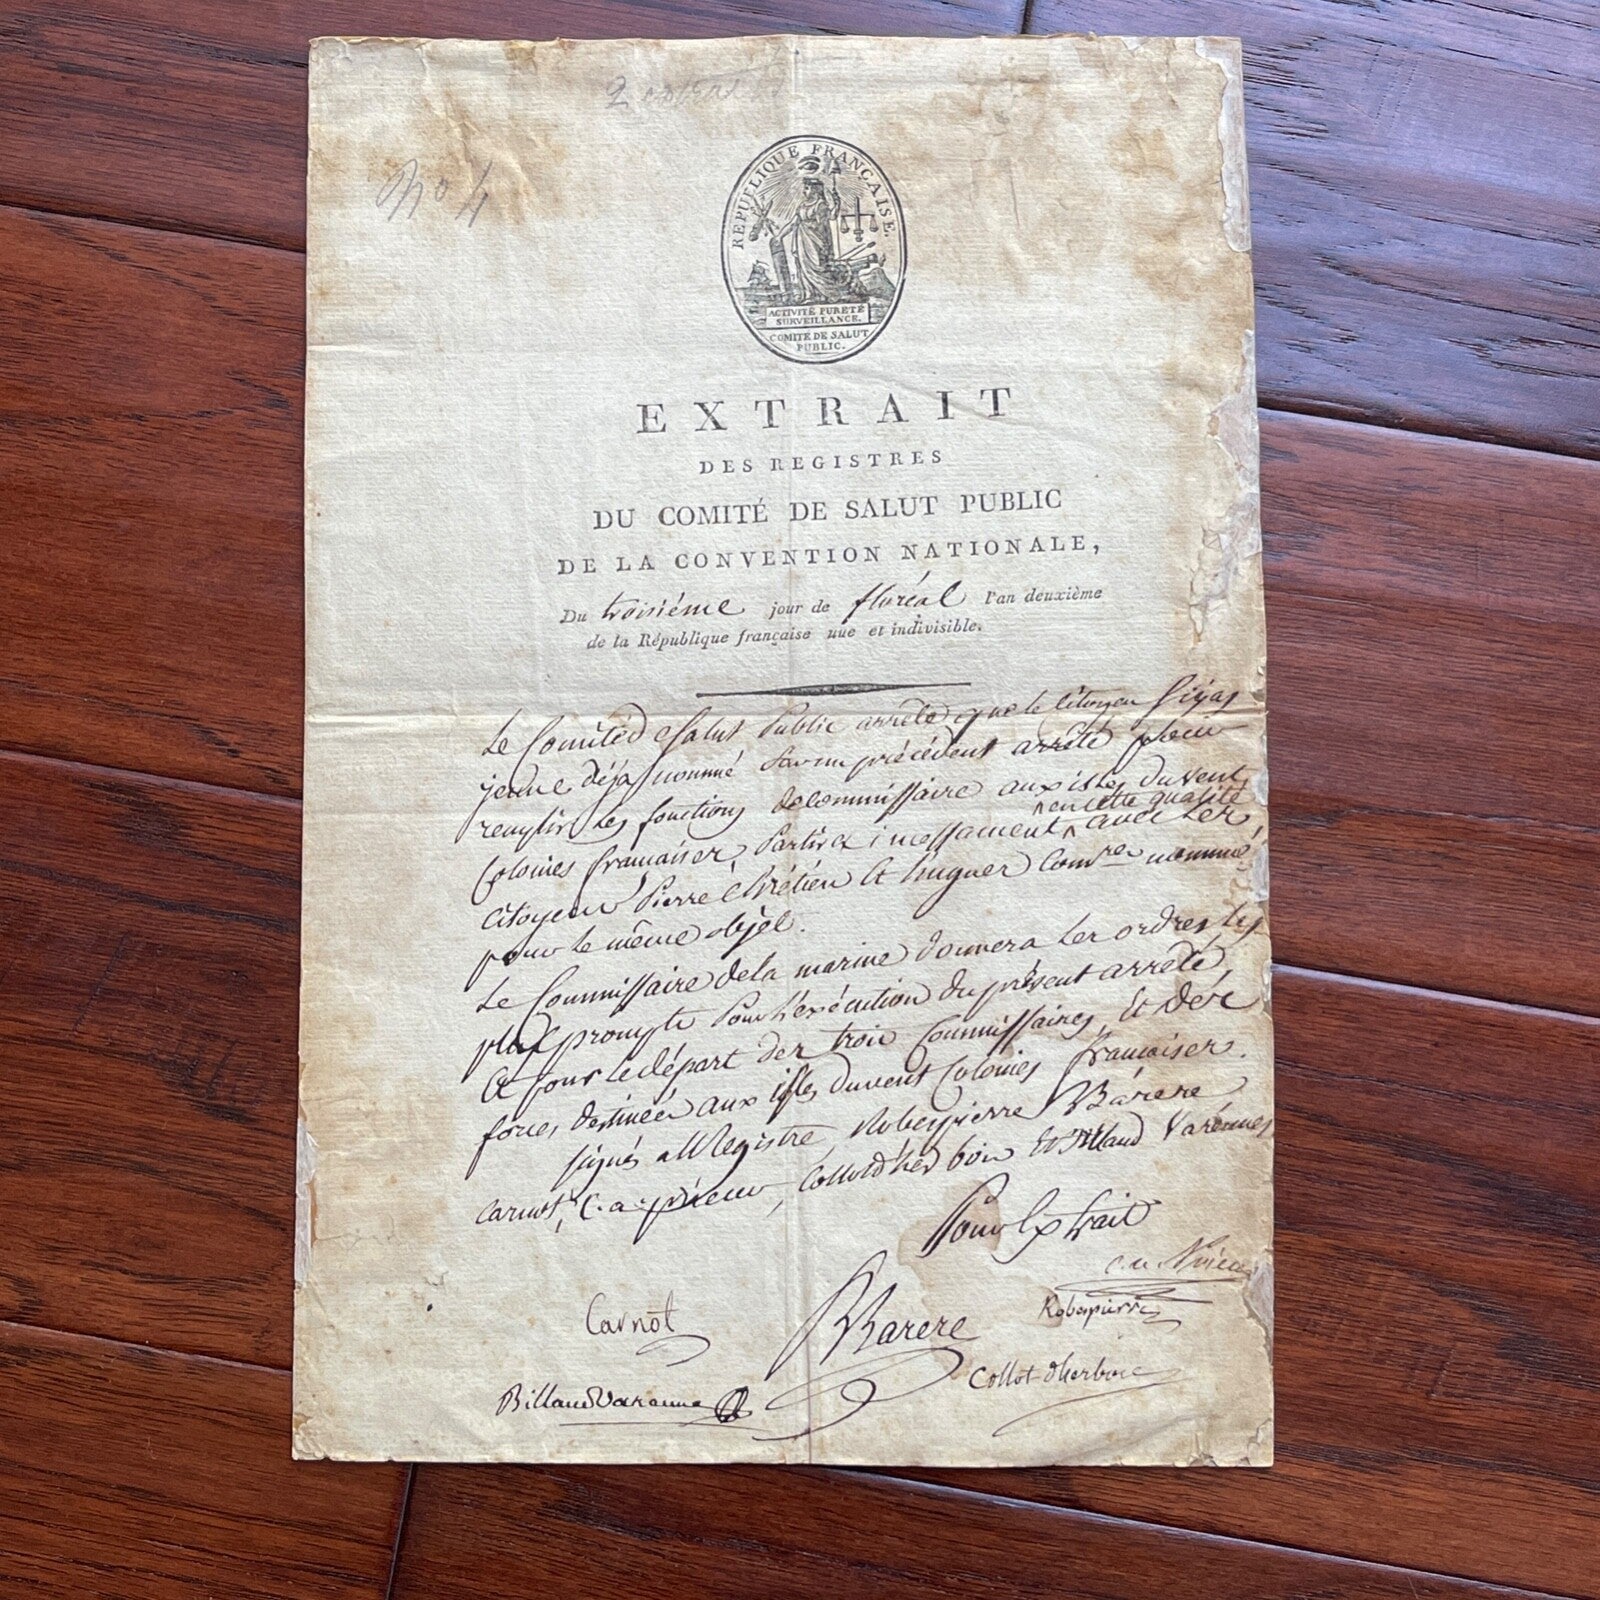 No 4
REPUBLIQUE FRANÇAISE.
ACTIVITÉ PURETÉ
SURVEILLANCE.
COMITÉ DE SALUT
PUBLIC.
EXTRAIT
DES REGISTRES
DU COMITÉ DE SALUT PUBLIC
DE LA CONVENTION NATIONALE,
Du troisième jour de floréal l'an deuxième
de la République française une et indivisible.
Le Comité de Salut Public arrête que le Citoyen Sijas
jeune déja nommé par un précédent arrêté pour
remplir les fonctions de commissaire aux isles du vent
en cette qualité
Colonies françaises, Partira incessament avec les
citoyens Pierre Chrétien et hugues Comres nommés
pour le même objet.
Le Commissaire de la marine donnera les ordres les
plus prompts Pour l'exécution du présent arrêté,
et pour le départ des trois Commissaires, et des
forces destinées aux isles du vent Colonies françaises.
signés au Registre, Robespierre, Barere
Carnot, C. a. prieur, Collot d'herbois et Billaud Varennes
Pour Extrait
C. a. Prieur
Carnot
Barere
Robespierre
Billaud Varenne
Collot d'herbois